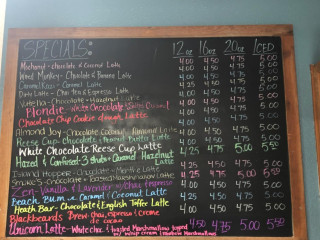 SPECIALS: 12 oz 16oz 20oz ICED
Mochanut - chocolate & Coconut Latte 4.00 4.50 4.75 5.00
Wind Monkey - Chocolate & Banana Latte 4.00 4.50 4.75 5.00
Caramel Kiss - Caramel Latte 4.00 4.50 4.75 5.00
Latte - Chai Tea & Espresso Latte 4.00 4.50 4.75 5.00
Nutella - Chocolate - Hazelnut Latte 4.00 4.50 4.75 5.00
Blondie - White Chocolate Caramel 4.00 4.50 4.75 5.00
Chocolate Chip Cookie Latte 4.00 4.50 4.75 5.00
Almond Joy - Chocolate Coconut Almond Latte 4.00 4.50 4.75 5.00
Reese Cup - Chocolate & Peanut Butter Latte 4.00 4.50 4.75 5.00
White Chocolate Reese Cup Latte 4.25 4.75 5.00 5.50
Hazed & Confused Caramel Hazelnut Latte 4.00 4.50 4.75 5.00
Island Hopper - Chocolate - Latte 4.00 4.50 4.75 5.00
Latte 4.25 4.75 5.00 5.50
Vanilla & Lavender Espresso 4.00 4.50 4.75 5.00
Beach Bum - Caramel & Coconut Latte 4.00 4.50 4.75 5.00
Heath Bar - Chocolate & English Toffee Latte 4.00 4.50 4.75 5.00
Blackbeards Brew - chai, espresso & creme de cacao 4.00 4.50 4.75 5.00
Unicorn Latte - White choc & toasted Marshmallow topped 4.50 4.75 5.00 5.50
w/ whip cream & Marshmallows